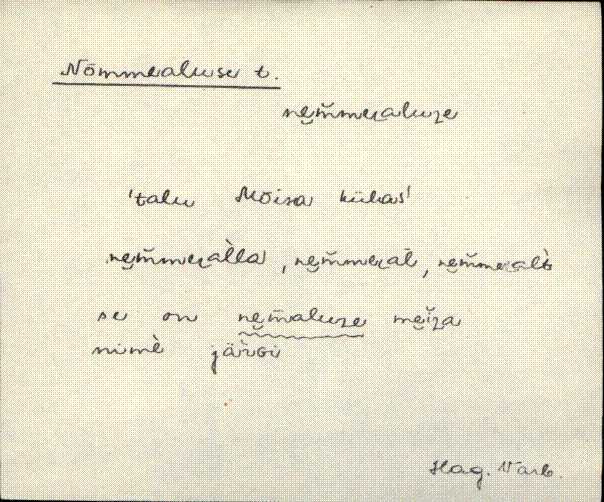 Nõmmealuse t.
ne̮m̆mealuze
'talu Mõisa külas'
ne̮m̆meàlla, ne̮m̆meāl, ne̮m̆mealt
se on ne̮m̆aluze me̮ĭza
nimè järvi
Hag. Varb.